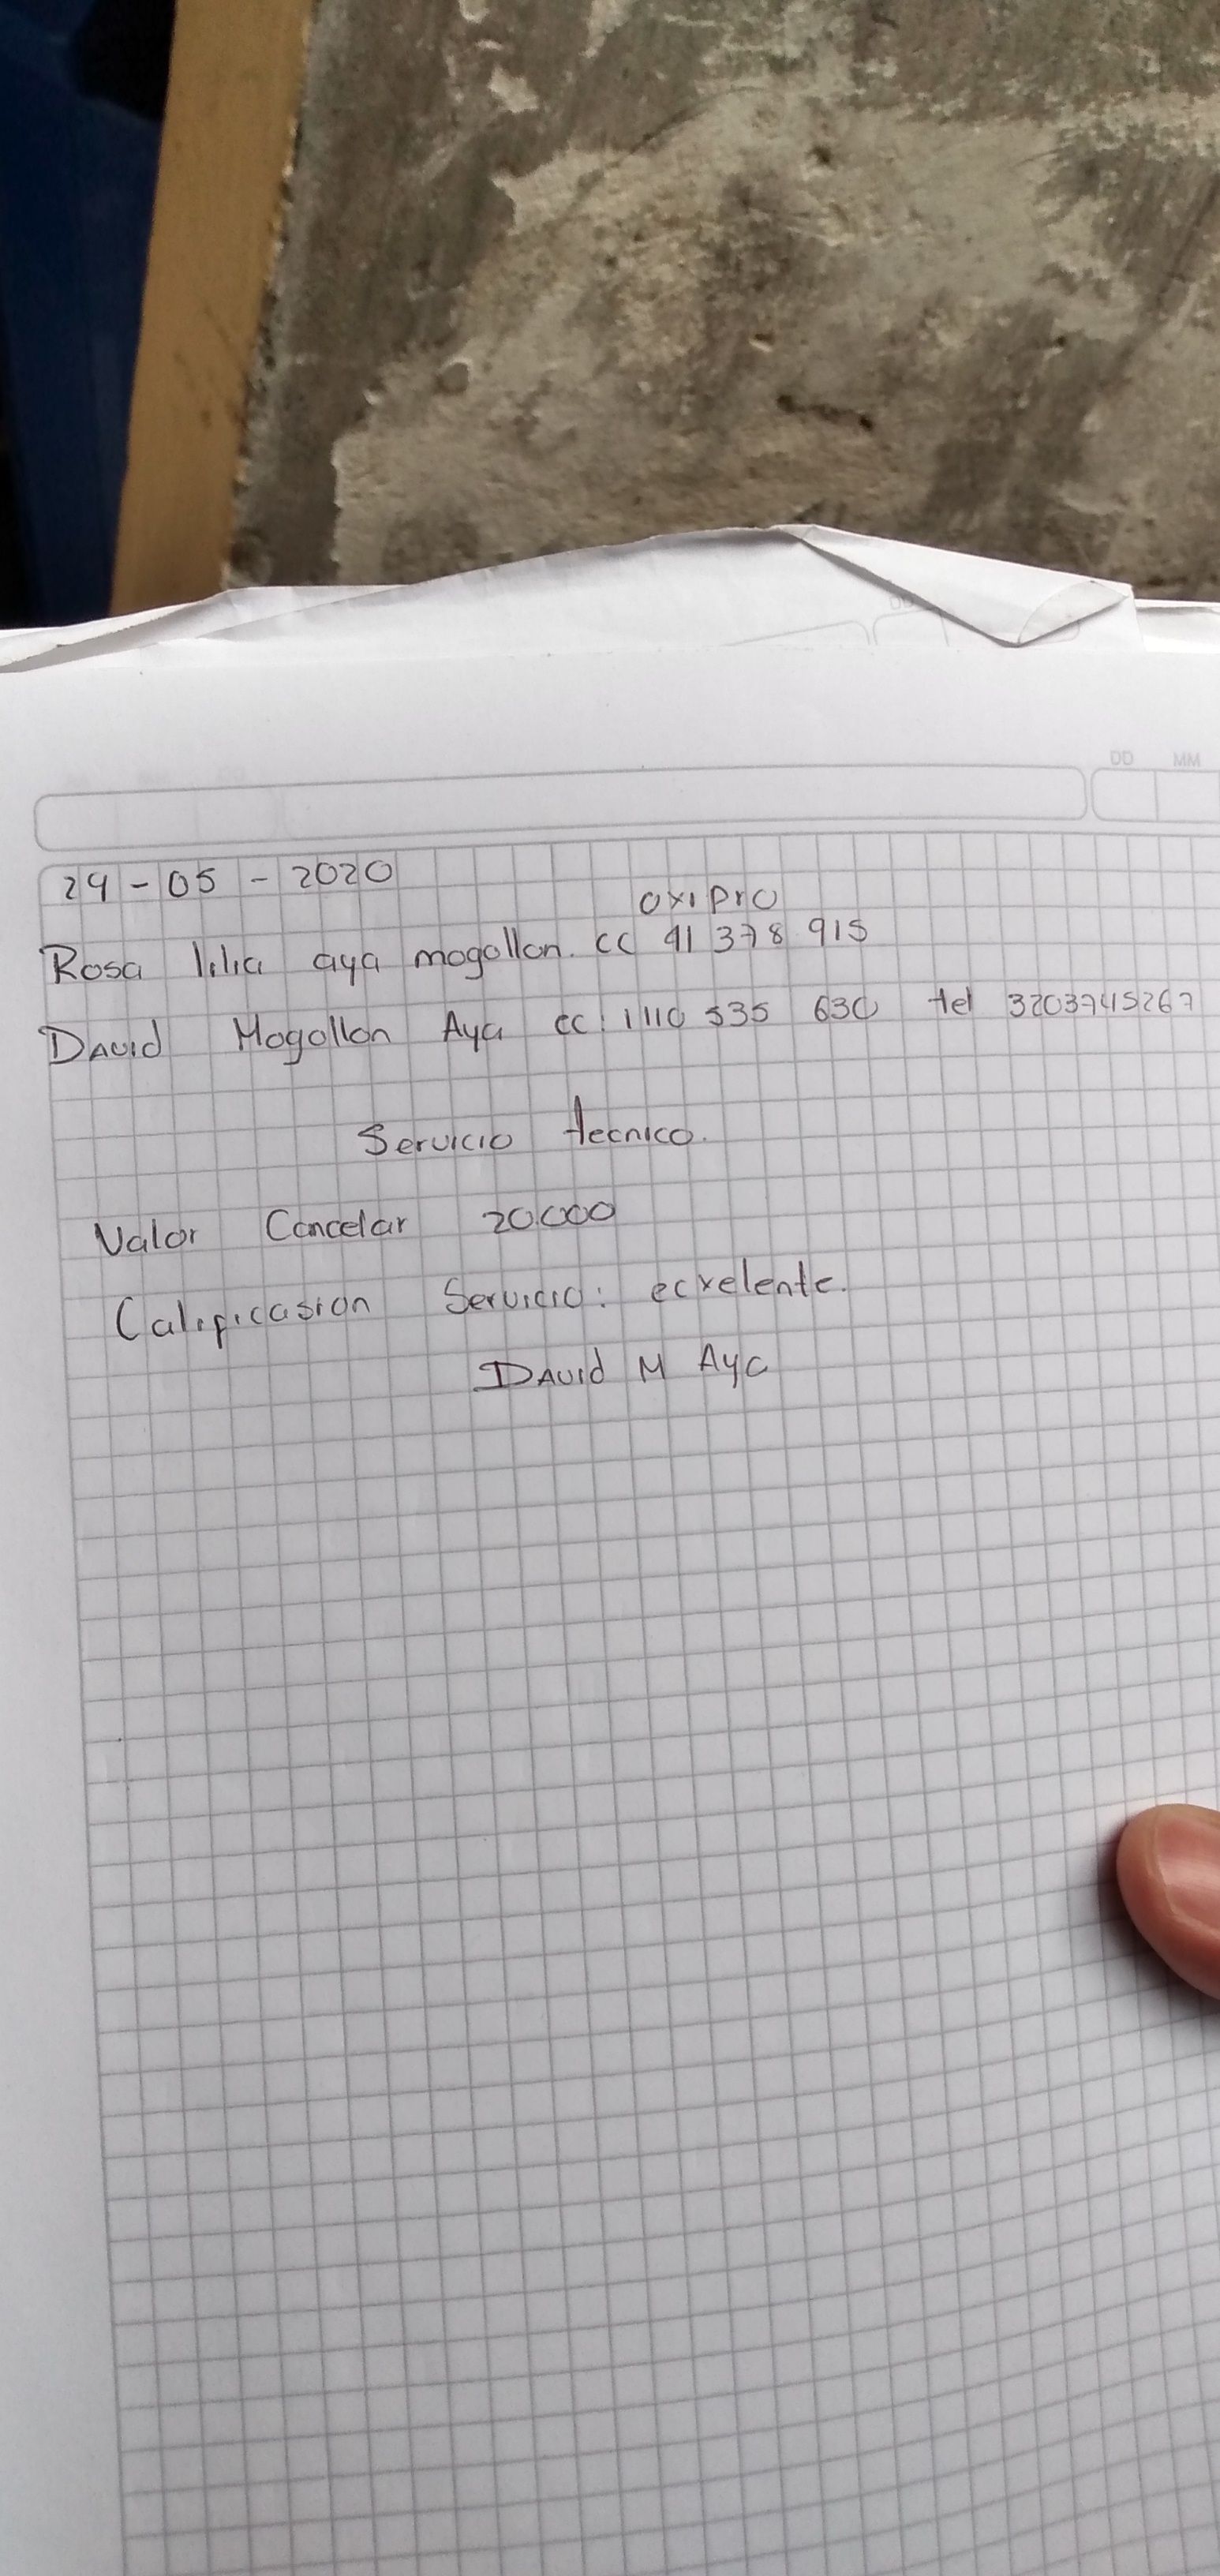 DD MM
29-05-2020
oxipro
Rosa lilia aya mogollon. cc 41 378 915
David Mogollon Aya cc: 1110 535 630 tel 3203745267
Servicio tecnico.
Valor Cancelar 20.000
Calificasion Servicio: ecxelente.
David M Aya